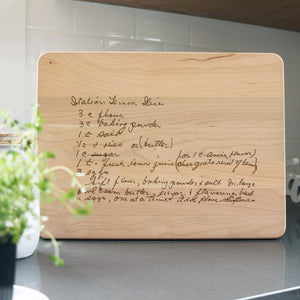 Italian Lemon Slice
3 c flour
3 t baking powder
1 t salt
1/2 c oleo or (butter)
1 c sugar (or 1 t anise flavor)
1 t fresh lemon juice (also grate rind of lemon)
3 eggs
Sift flour, baking powder & salt. In large
cream butter, sugar & flavoring, beat
eggs, one at a time & add flour